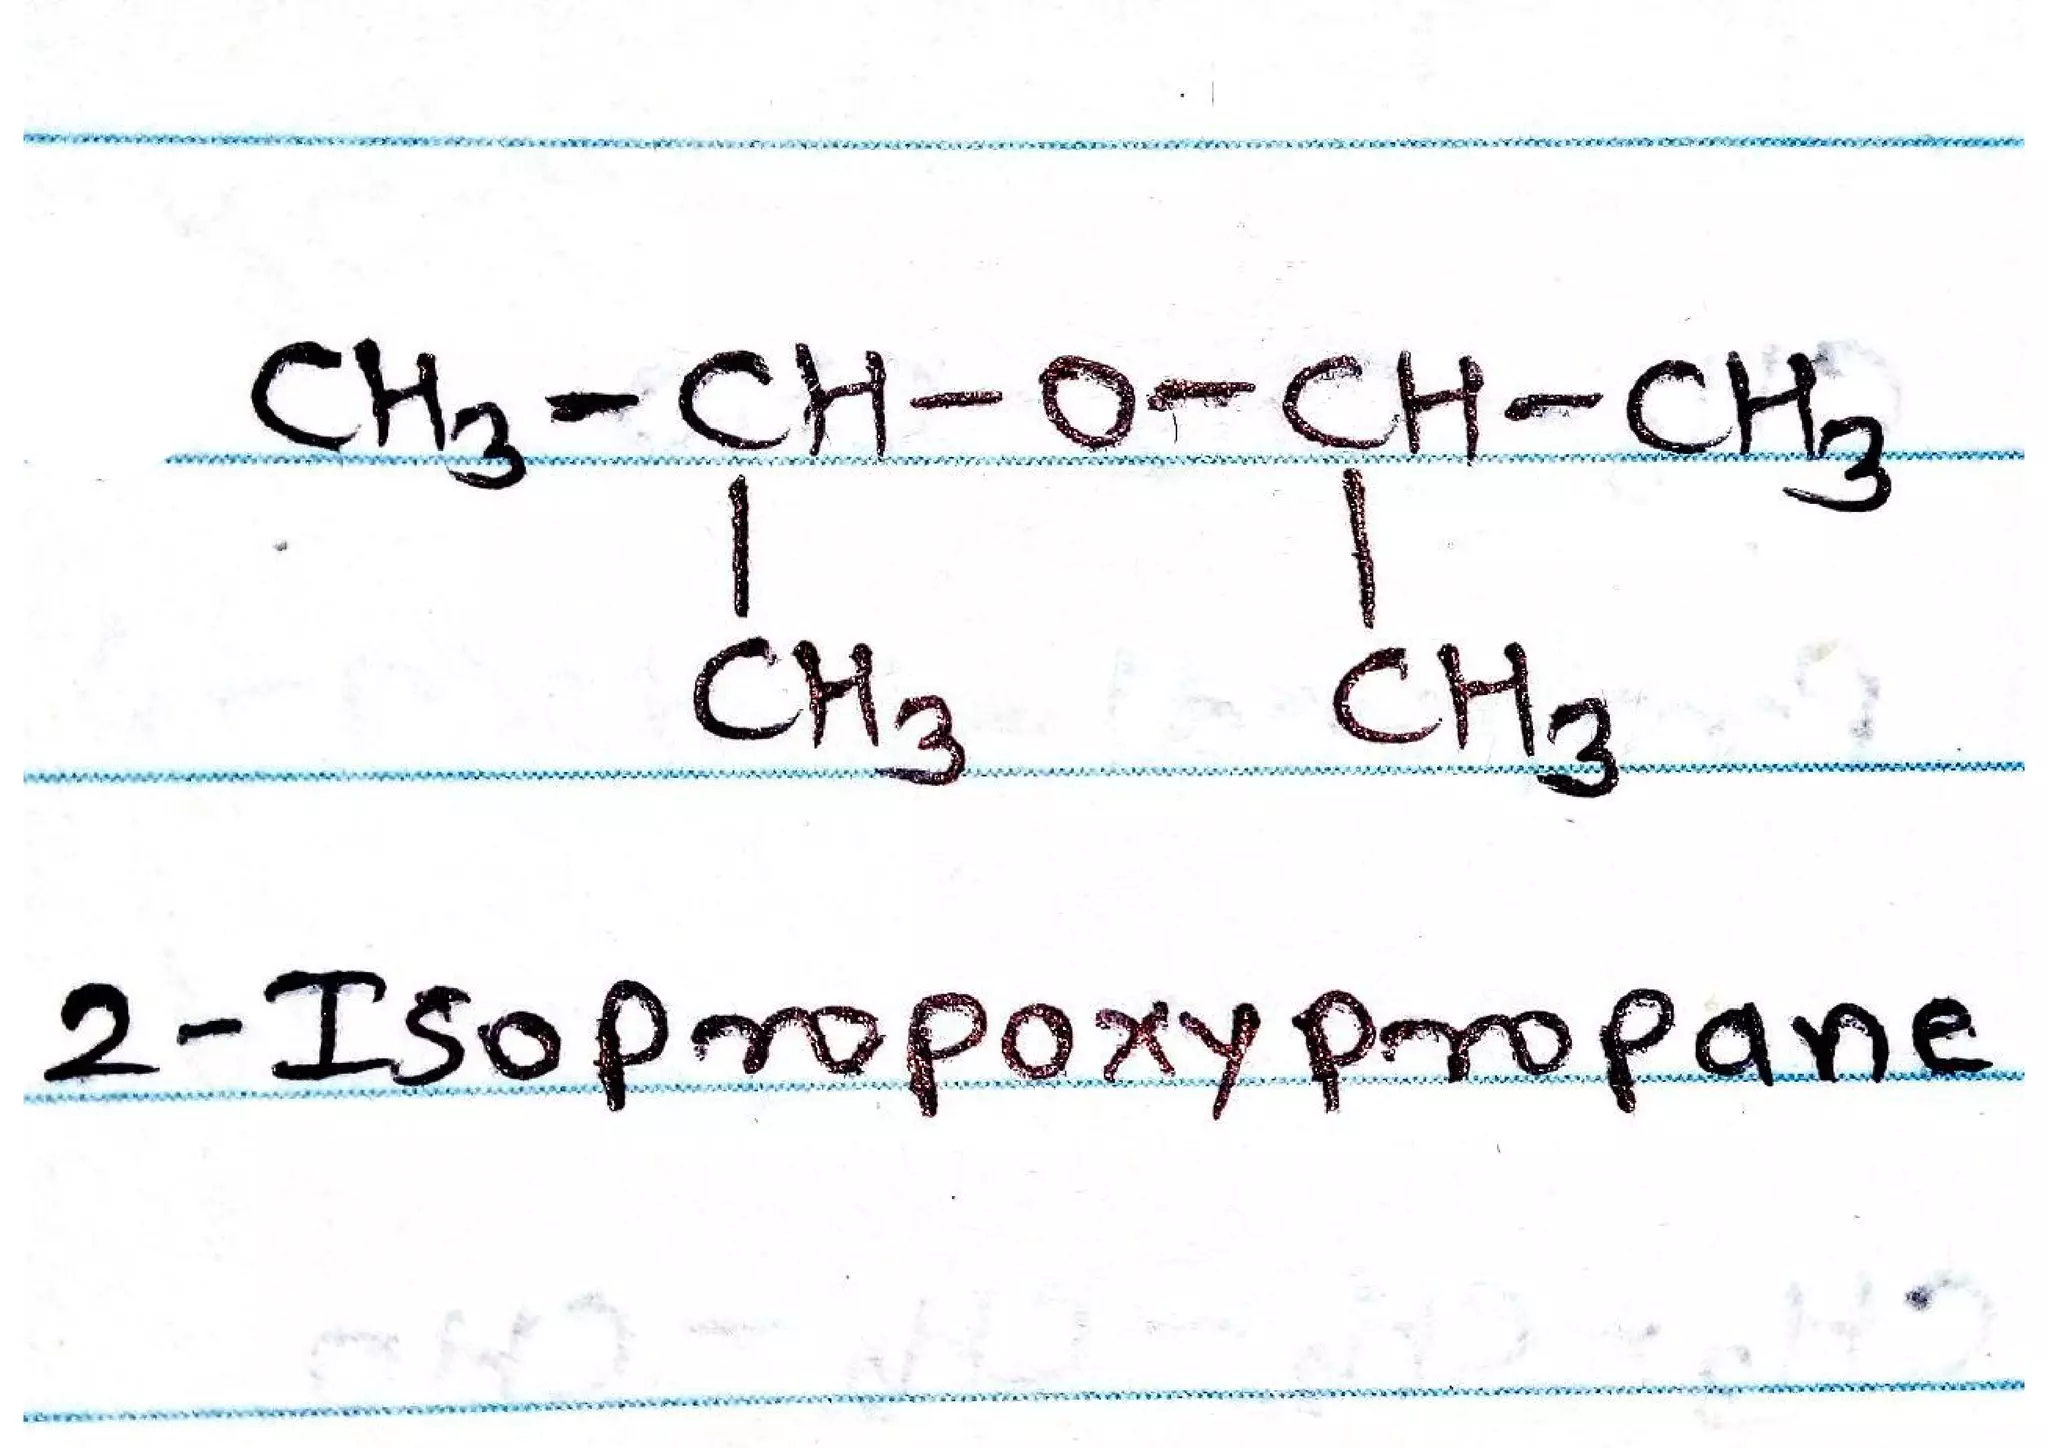 CH3-CH-O-CH-CH3
CH3 CH3
2-Isopropoxypropane